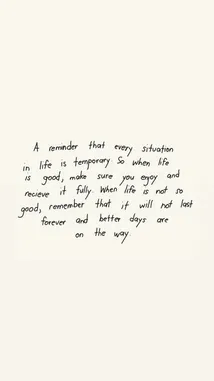 A reminder that every situation
in life is temporary. So when life
is good, make sure you enjoy and
recieve it fully. When life is not so
good, remember that it will not last
forever and better days are
on the way.